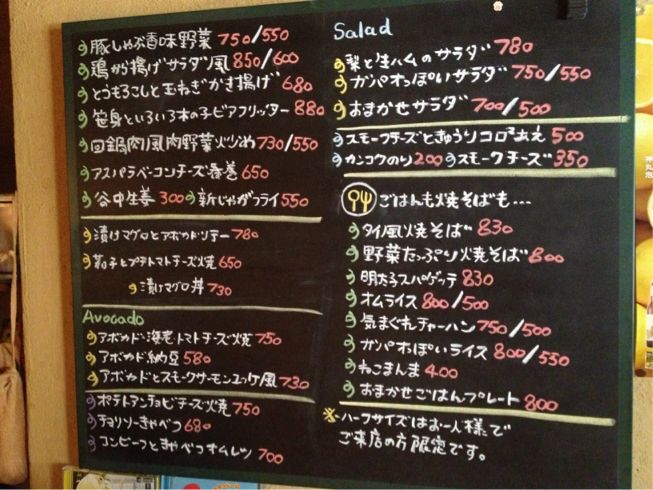 豚しゃぶ香味野菜 750/550
鶏から揚げサラダ風 850/600
とうもろこしと玉ねぎかき揚げ 680
笹身といろいろ木の子ビアフリッター 880
回鍋肉風肉野菜炒め 730/550
アスパラベーコンチーズ春巻 650
谷中生姜 300 新じゃがフライ 550
漬けマグロとアボカドソテー 780
茄子とプチトマトチーズ焼 650
漬けマグロ丼 730
Avocado
アボカド海老トマトチーズ焼 750
アボカド納豆 580
アボカドとスモークサーモンユッケ風 730
ポテトアンチョビチーズ焼 750
チョリソーきゃべつ 680
コンビーフときゃべつオムレツ 700
Salad
梨と生ハムのサラダ 780
ガパオっぽいサラダ 750/550
おまかせサラダ 700/500
スモークチーズときゅうりコロコロあえ 500
カンコクのり 200 スモークチーズ 350
ごはんも焼そばも…
タイ風焼そば 830
野菜たっぷり焼そば 800
明たらスパゲッテ 830
オムライス 800/500
気まぐれチャーハン 750/500
ガパオっぽいライス 800/550
ねこまんま 400
おまかせごはんプレート 800
※ハーフサイズはお一人様で
ご来店の方限定です。